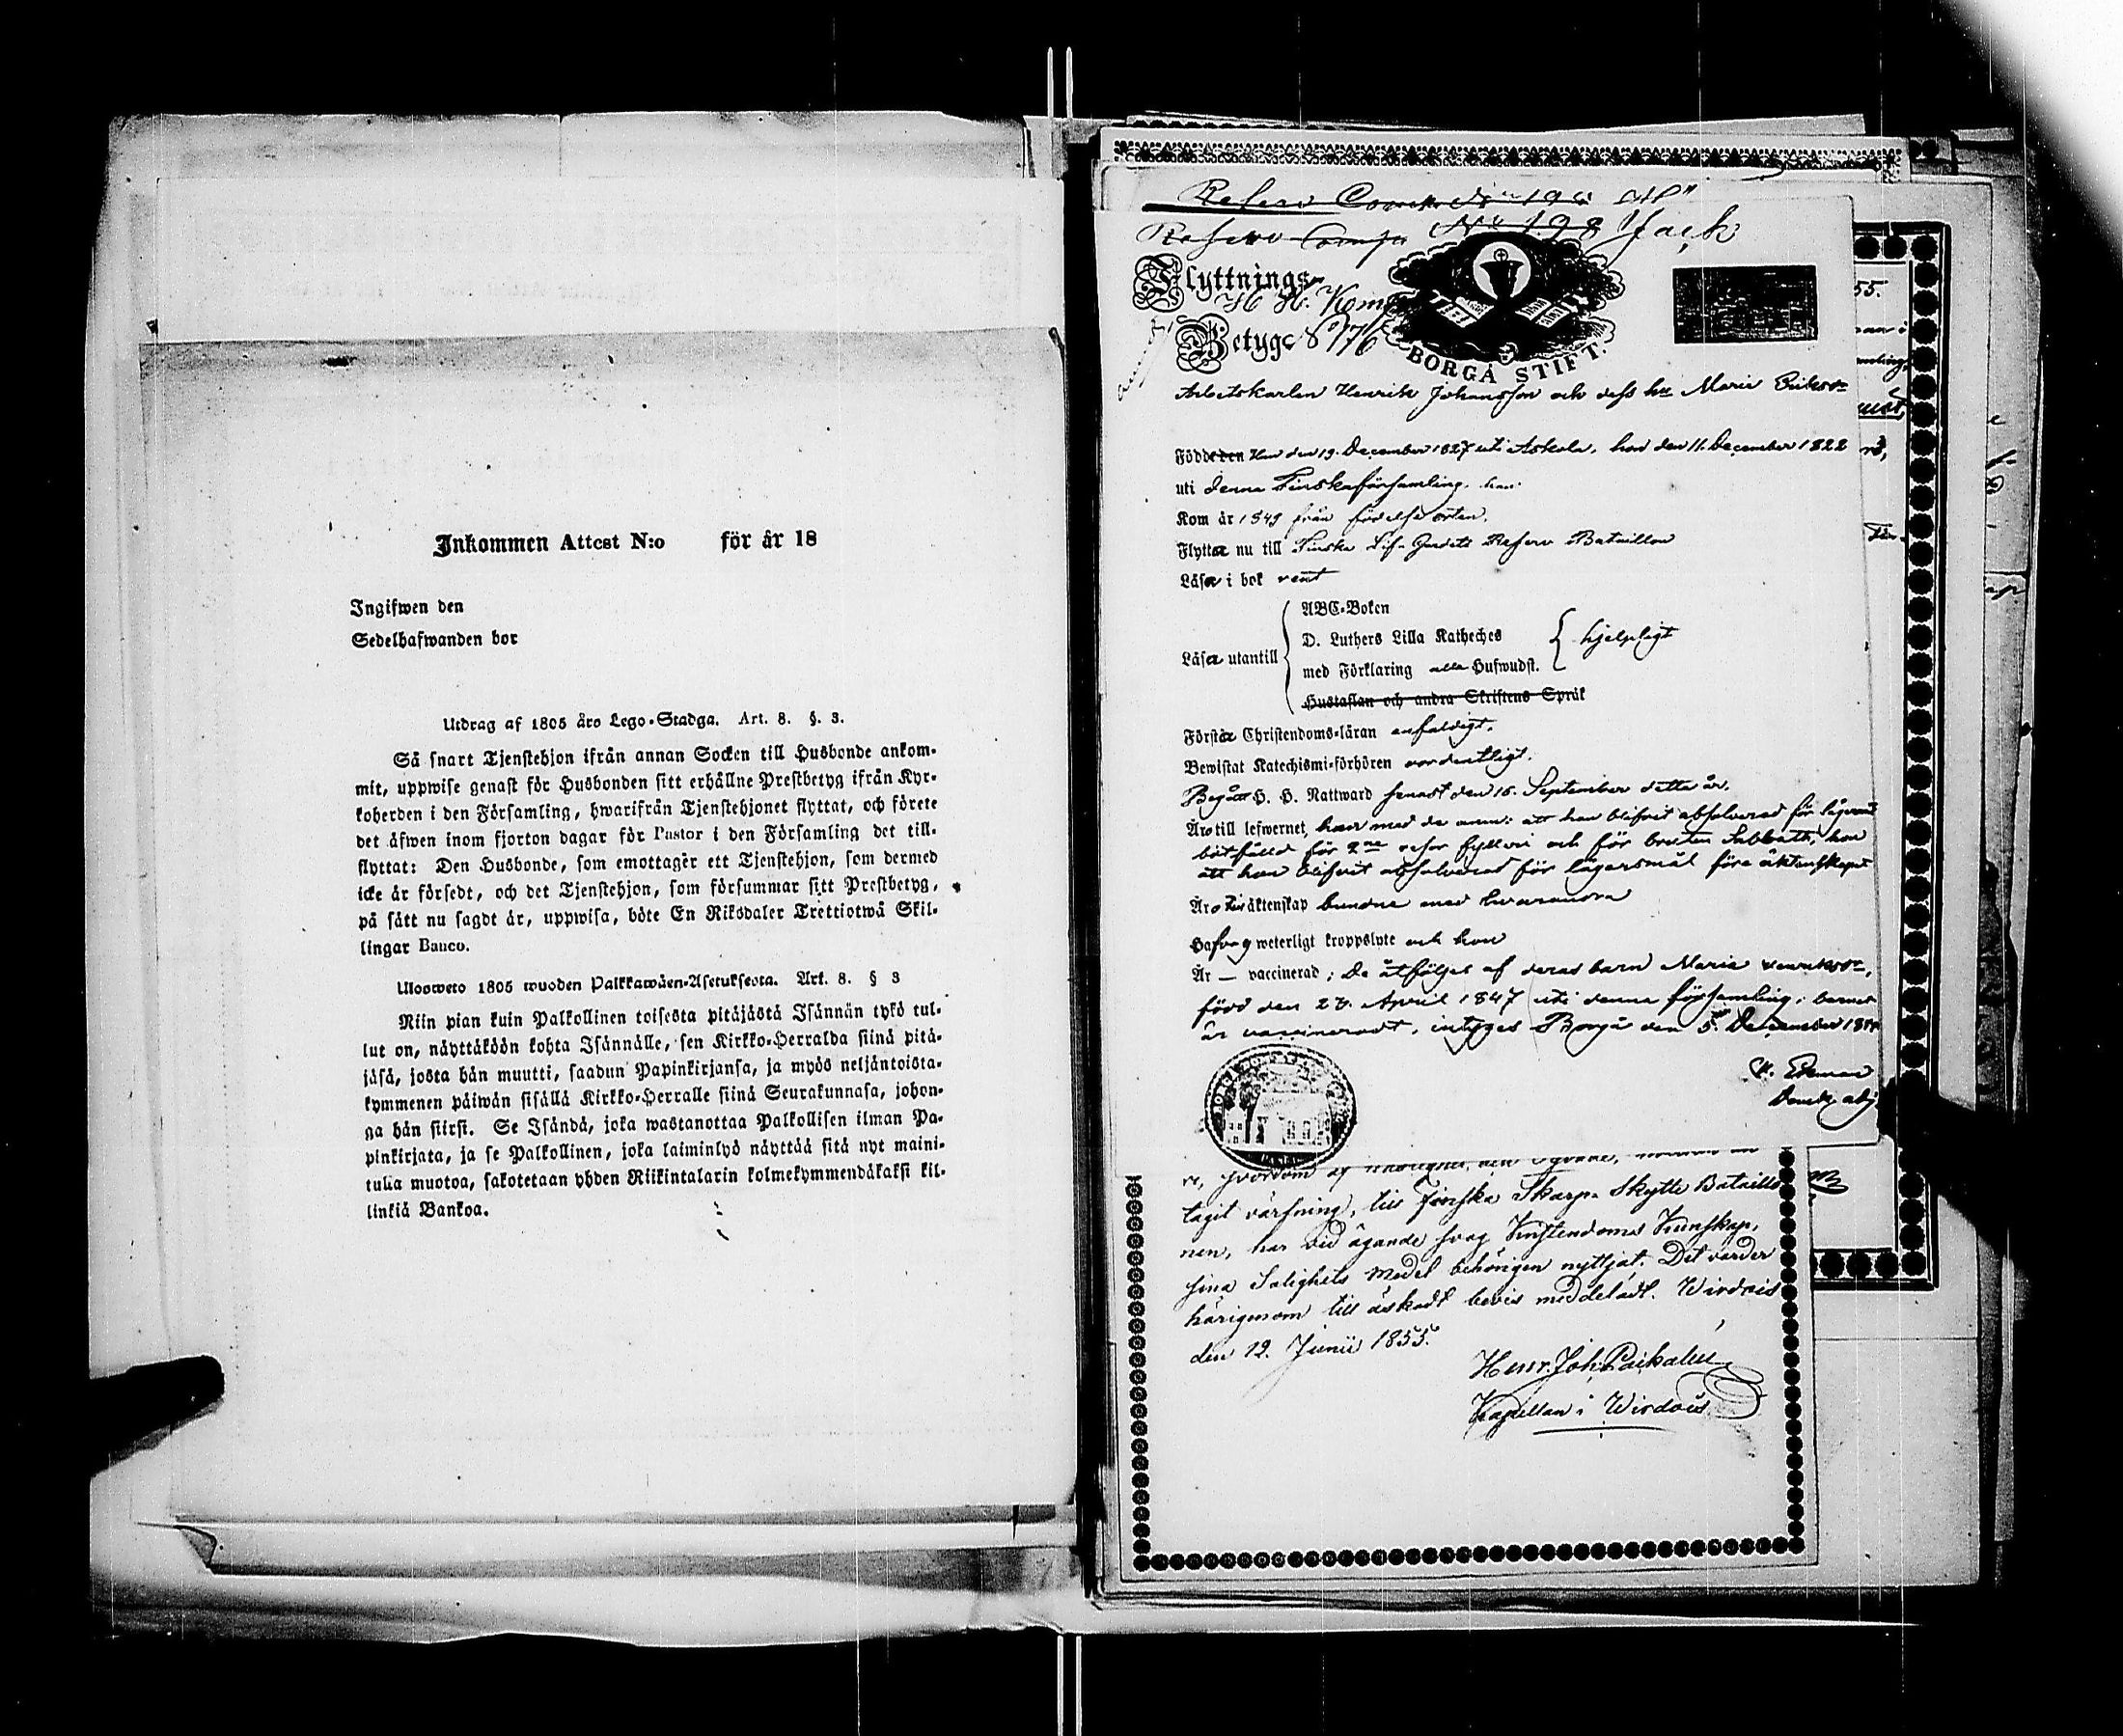 Inkommen Attest N:o för år 18
Ingifwen den
Sedelhafwanden bor
Utdrag af 1805 års Lego-Stadga. Art. 8. §. 3.
Så snart Tjenstehjon ifrån annan Socken till Husbonde ankom-
mit, uppwise genast för Husbonden sitt erhållne Prestbetyg ifrån Kyr-
koherden i den Församling, hwarifrån Tjenstehjonet flyttat, och förete
det äfwen inom fjorton dagar för Pastor i den Församling det till-
flyttat: Den Husbonde, som emottager ett Tjenstehjon, som dermed
icke är försedt, och det Tjenstehjon, som försummar sitt Prestbetyg,
på sätt nu sagdt är, uppwisa, böte En Riksdaler Trettiotwå Skil-
lingar Banco.
Ulosweto 1805 wuoden Palkkawäen-Asetuksesta. Art. 8. § 3
Niin pian kuin Palkollinen toisesta pitäjästä Isännän tykö tul-
lut on, näyttäköön kohta Isännälle, sen Kirkko-Herralda siinä pitä-
jäsä, josta hän muutti, saadun Papinkirjansa, ja myös neljäntoista-
kymmenen päiwän sisällä Kirkko-Herralle siinä Seurakunnasa, johon-
ga hän siirsi. Se Isändä, joka wastanottaa Palkollisen ilman Pa-
pinkirjata, ja se Palkollinen, joka laiminlyö näyttää sitä nyt maini-
tulla muotoa, sakotetaan yhden Riikintalarin kolmekymmendäkaksi kil-
linkiä Bankoa.
Reserv
Reserv Comp. No 198
Flyttnings-
Betyg No 176
BORGÅ STIFT.
Arbetskarlen Henrik Johansson och dess hu Maria Eriksdr
Födde den Han den 19. December 1827 uti Askola, hon den 11. December 1822
uti denna Finska församling. han
Kom år 1849 från födelse orten.
Flytta nu till Finska Lif-Gardets Reserv Bataillon
Läsa i bok rent
Läsa utantill
ABC-Boken
D. Luthers Lilla Katheches
med Förklaring alla Hufwudst.
hjelpligt
Hustaflan och andra Skriftens Språk
Förstå Christendoms-läran enfaldigt.
Bewistat Katechismi-förhören ordentligt.
Begått H. H. Nattward senast den 16. September detta år.
Äro till lefwernet, han med de anm: att han blifvit absolverad för lägersm
bötfälld för 2ne resor fylleri och för bruten Sabbath; hon
att hon blifvit absolverad för lägersmål före äktenskapet
Äro till äktenskap bundne med hwarandra
Hafva weterligt kroppslyte och hon
Är — vaccinerad; De åtföljes af deras barn Maria Henriksdr,
född den April 1847 uti denna församling; barnet
är vaccineradt, intygas Borgå den 5. December
tagit värfning, till Finska Skarp-Skytte Bataillo
nen, har vid ägande svag Kristendoms Kunskap,
sina Salighets Medel behörigen nyttjat. Det varder
härigenom till äskadt bevis meddeladt. Wirdois
den 12. Junii 1855.
Henr. Joh. 
Kapellan i Wirdois
55.